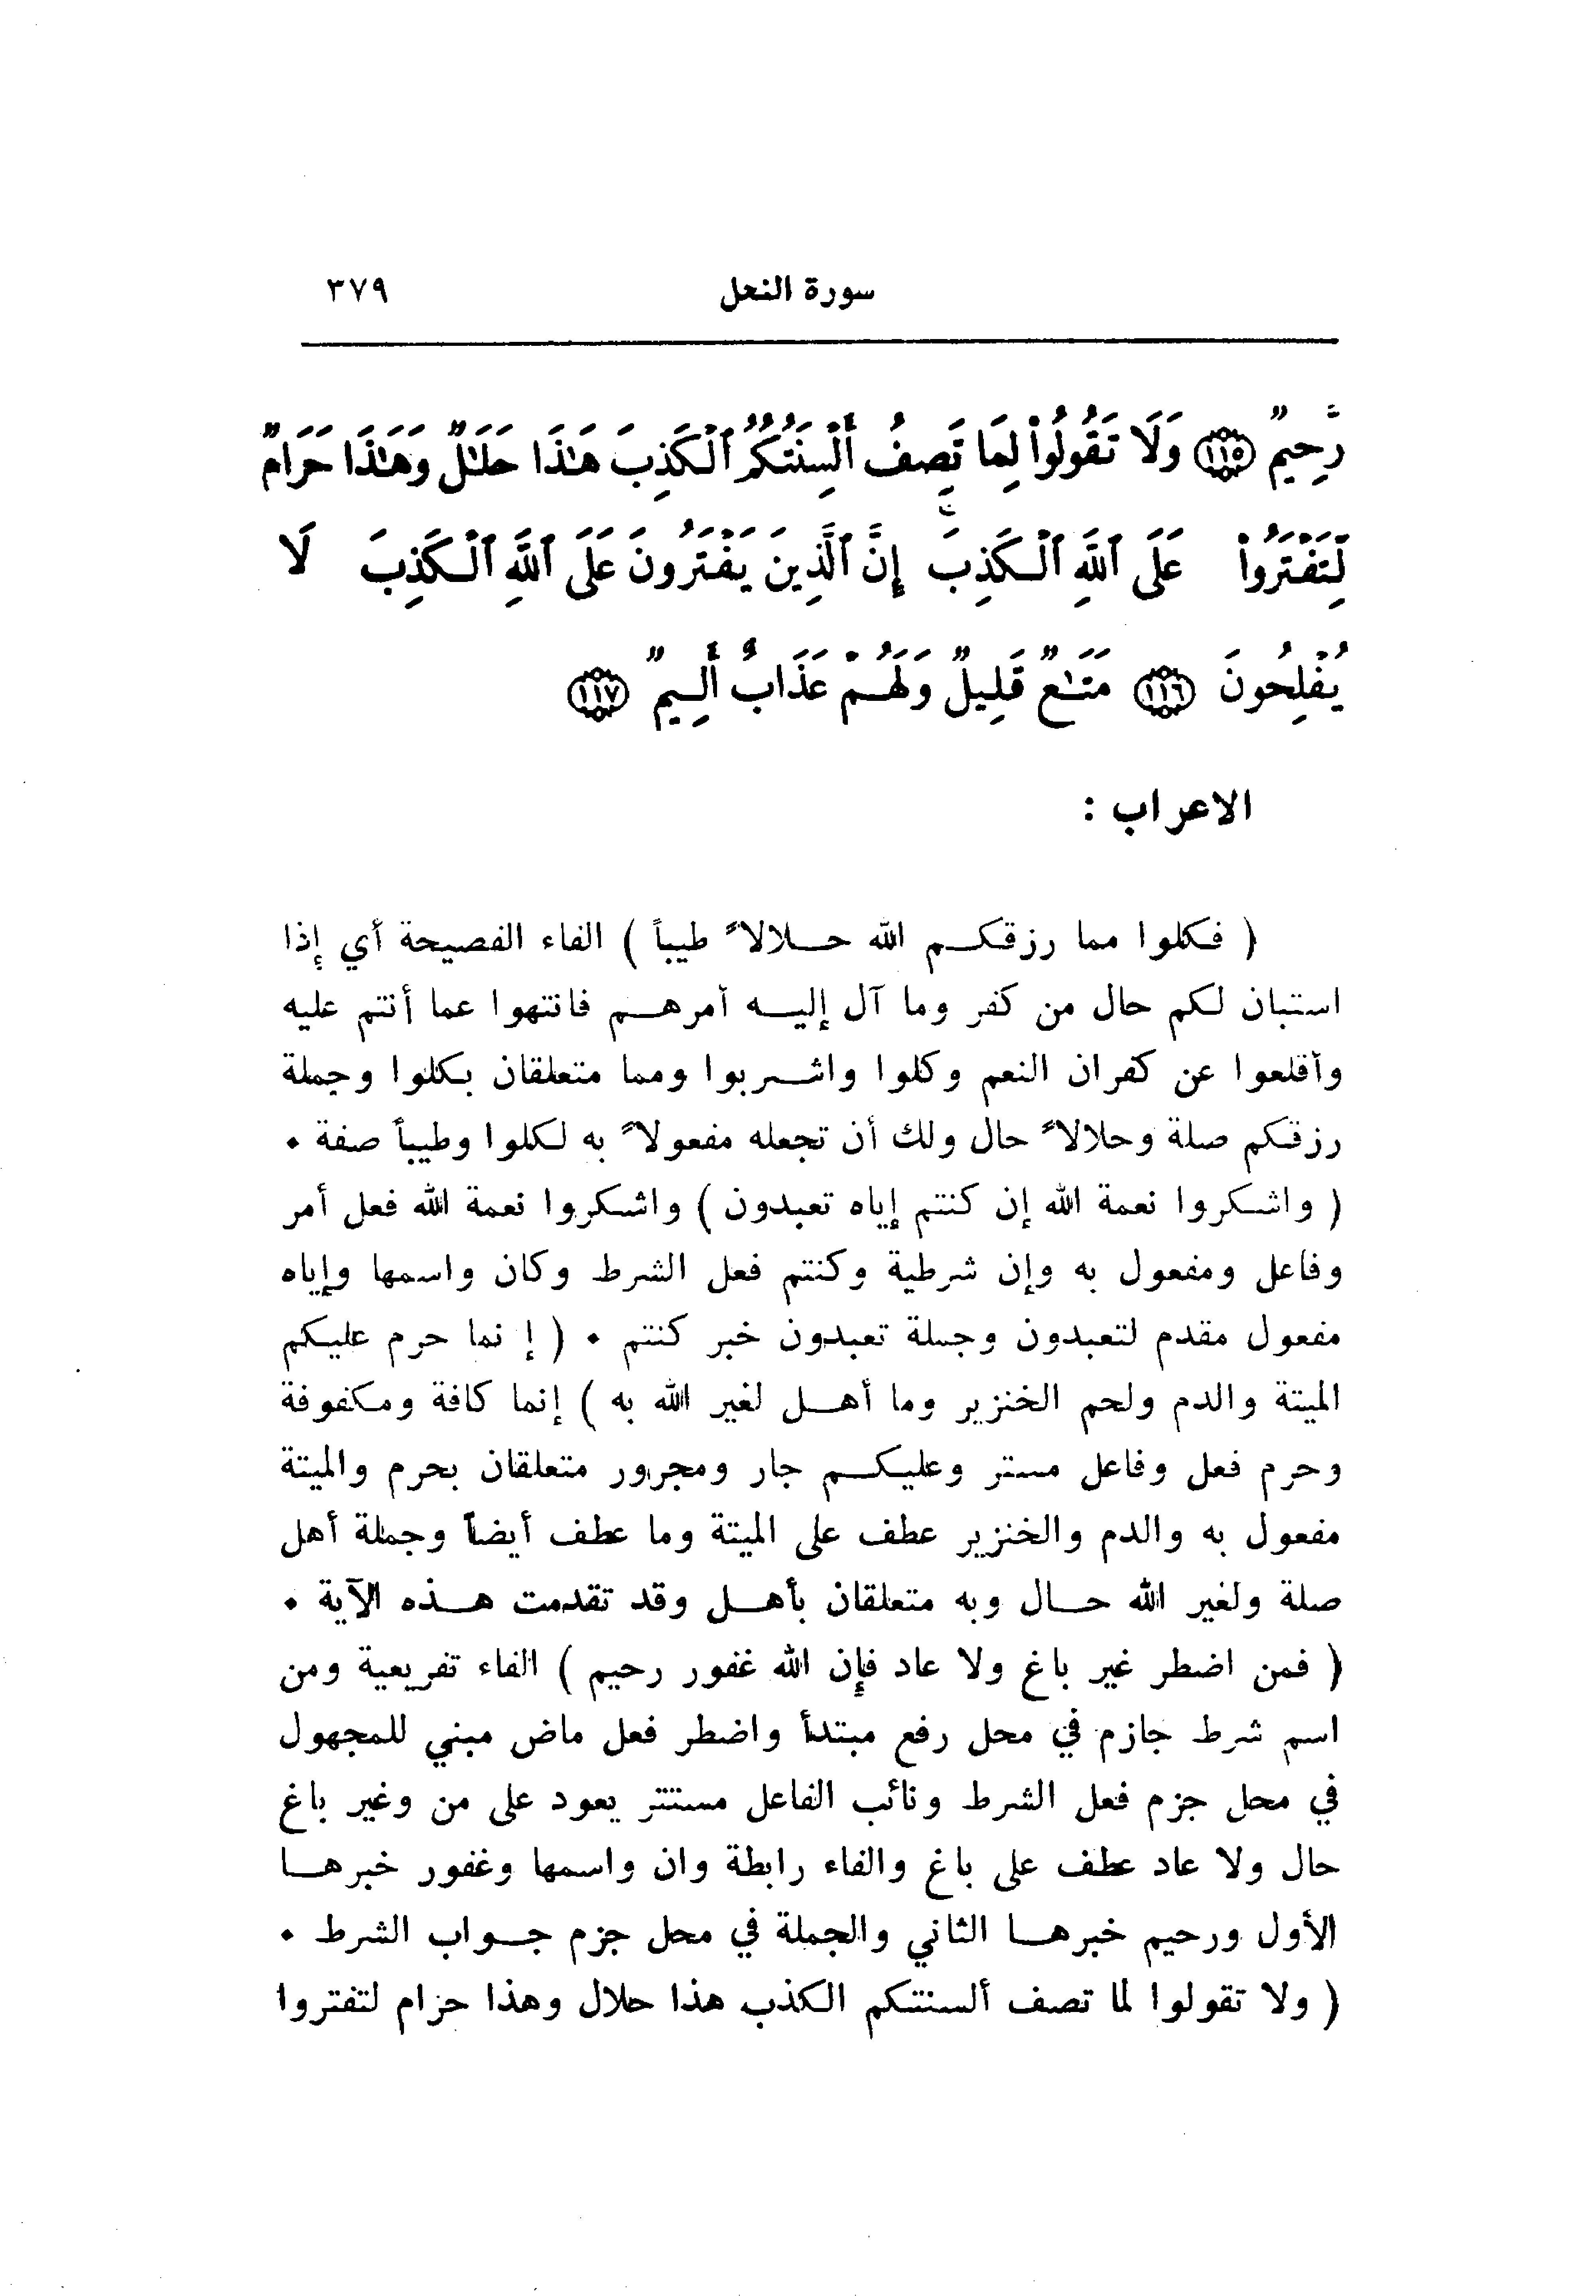 سورة النحل ٣٧٩
رَّحِيمٌ ١١٥ وَلَا تَقُولُوا۟ لِمَا تَصِفُ أَلْسِنَتُكُمُ ٱلْكَذِبَ هَـٰذَا حَلَـٰلٌ وَهَـٰذَا حَرَامٌ
لِّتَفْتَرُوا۟ عَلَى ٱللَّهِ ٱلْكَذِبَ ۚ إِنَّ ٱلَّذِينَ يَفْتَرُونَ عَلَى ٱللَّهِ ٱلْكَذِبَ لَا
يُفْلِحُونَ ١١٦ مَتَـٰعٌ قَلِيلٌ وَلَهُمْ عَذَابٌ أَلِيمٌ ١١٧
الاعراب :
( فكلوا مما رزقكم الله حلالاً طيباً ) الفاء الفصيحة أي إذا
استبان لكم حال من كفر وما آل إليه أمرهم فانتهوا عما أنتم عليه
وأقلعوا عن كفران النعم وكلوا واشربوا ومما متعلقان بكلوا وجملة
رزقكم صلة وحلالاً حال ولك أن تجعله مفعولاً به لكلوا وطيباً صفة ٠
( واشكروا نعمة الله إن كنتم إياه تعبدون ) واشكروا نعمة الله فعل أمر
وفاعل ومفعول به وإن شرطية وكنتم فعل الشرط وكان واسمها وإياه
مفعول مقدم لتعبدون وجملة تعبدون خبر كنتم ٠ ( إنما حرم عليكم
الميتة والدم ولحم الخنزير وما أهل لغير الله به ) إنما كافة ومكفوفة
وحرم فعل وفاعل مستر وعليكم جار ومجرور متعلقان بحرم والميتة
مفعول به والدم والخنزير عطف على الميتة وما عطف أيضاً وجملة أهل
صلة ولغير الله حال وبه متعلقان بأهل وقد تقدمت هذه الآية ٠
( فمن اضطر غير باغ ولا عاد فإن الله غفور رحيم ) الفاء تفريعية ومن
اسم شرط جازم في محل رفع مبتدأ واضطر فعل ماض مبني للمجهول
في محل جزم فعل الشرط ونائب الفاعل مستتر يعود على من وغير باغ
حال ولا عاد عطف على باغ والفاء رابطة وان واسمها وغفور خبرها
الأول ورحيم خبرها الثاني والجملة في محل جزم جواب الشرط ٠
( ولا تقولوا لما تصف ألسنتكم الكذب هذا حلال وهذا حرام لتفتروا